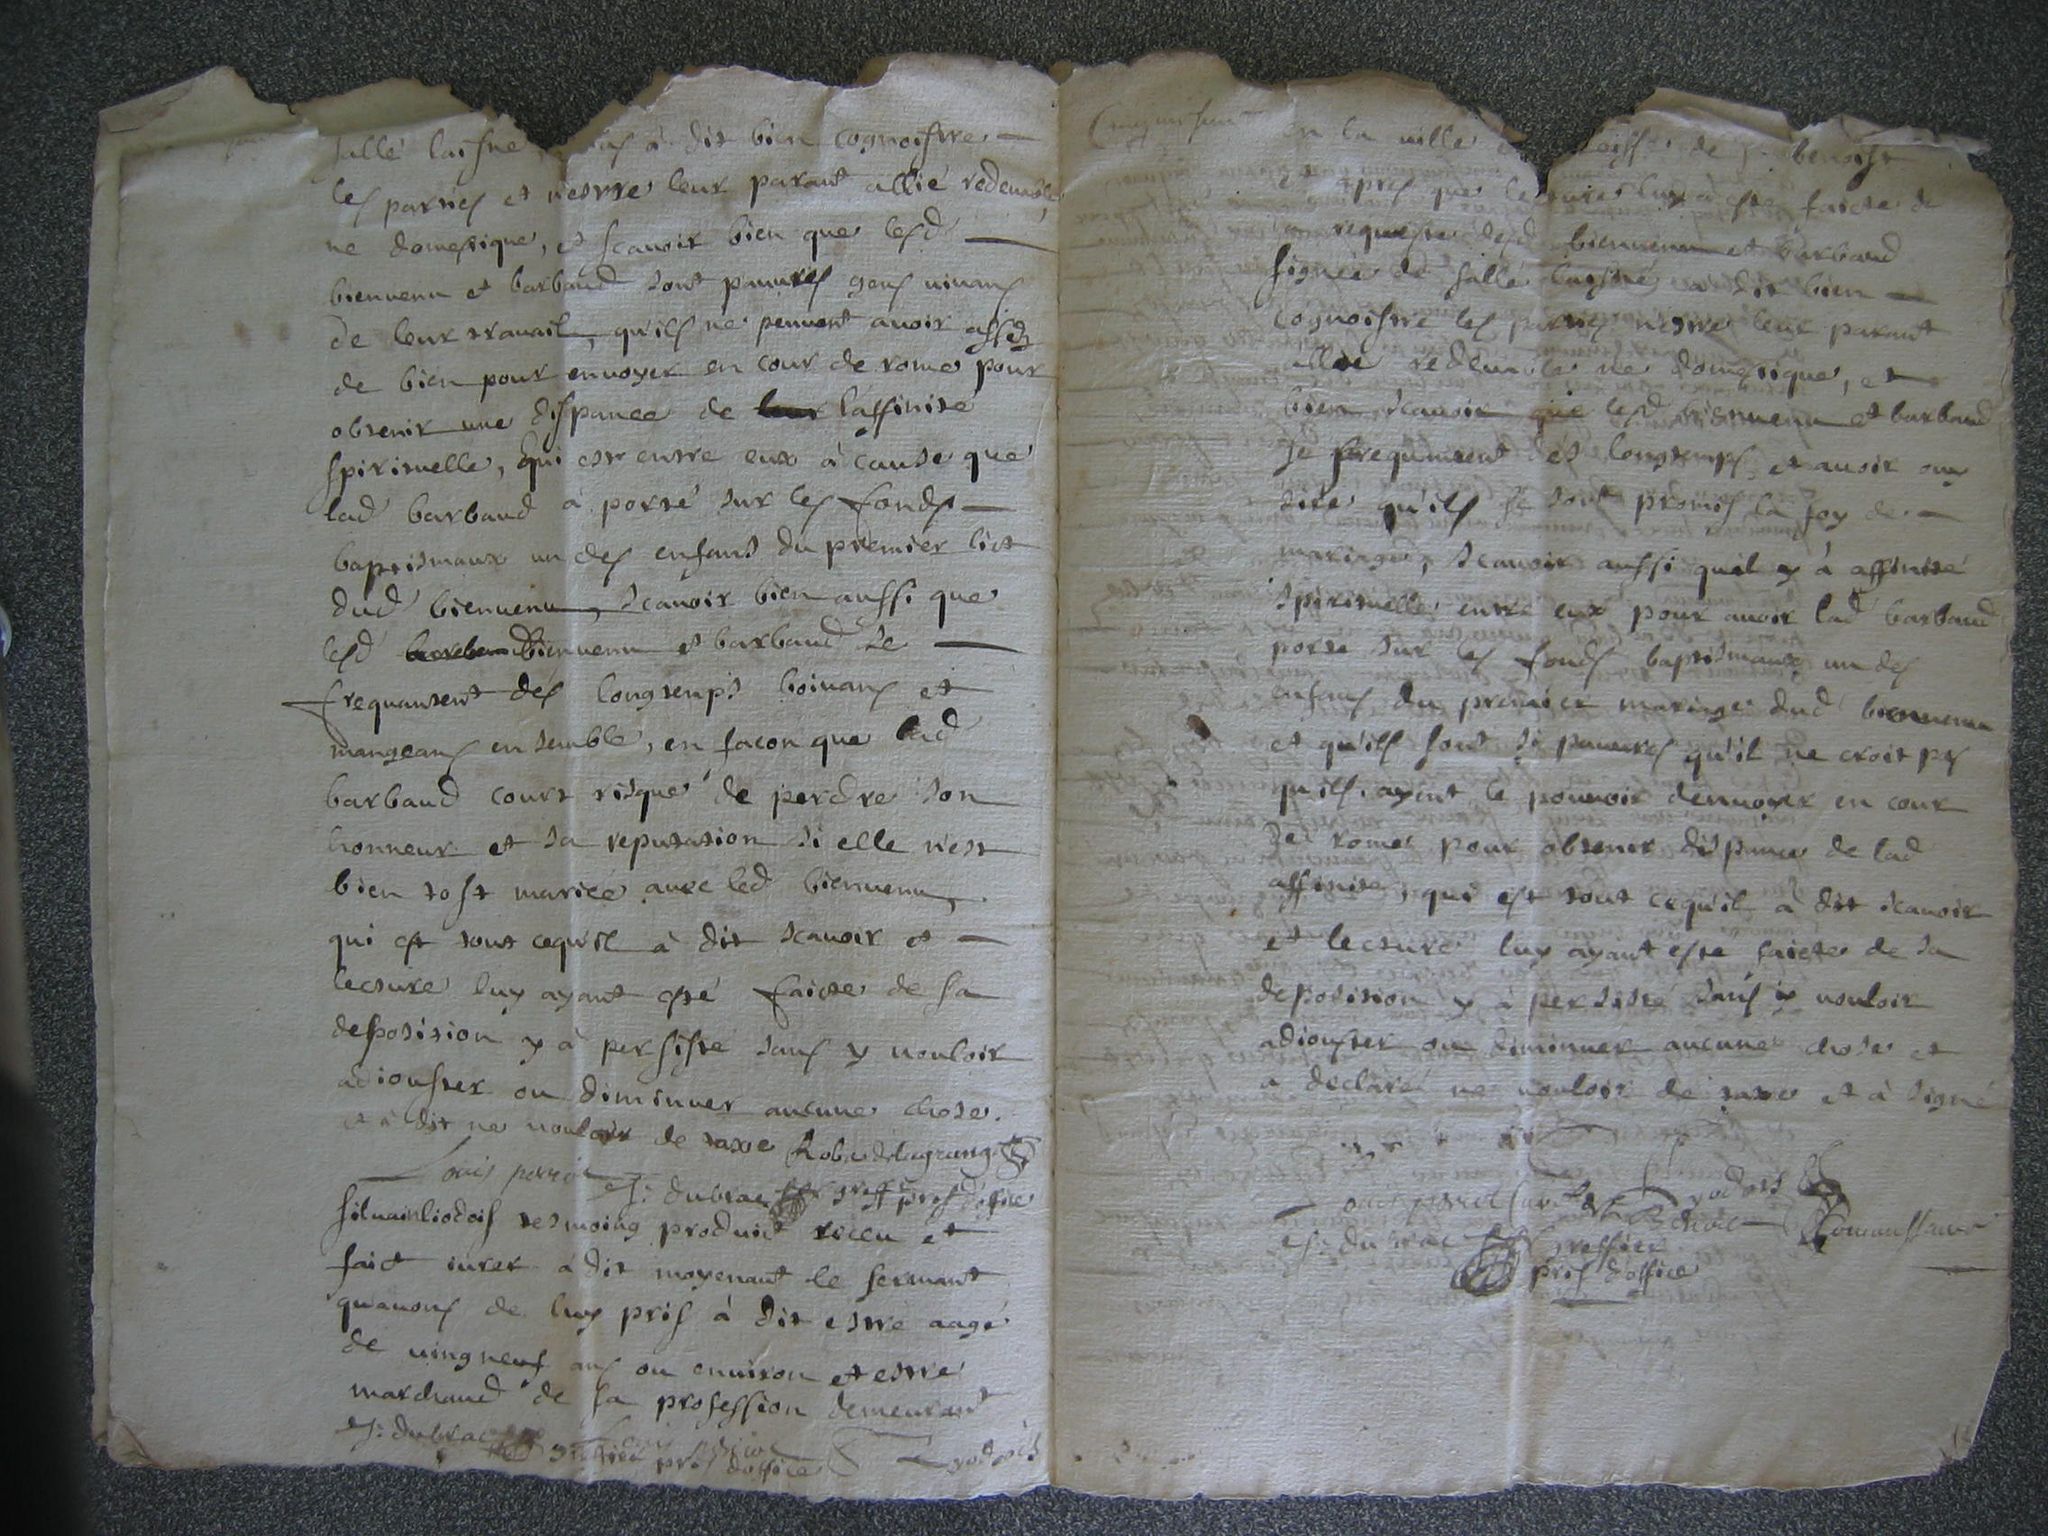 sallé laisné à dit bien cognoistre
les parties et n'estre leur parant allié redeuable
ne domestique, et scauoir bien que lesd
bienuenu et barbaud sont pauures gens uiuans
de leur trauail, qu'ils ne peuuent auoir assez
de bien pour enuoyer en cour de rome pour
obtenir une dispance de leur l'affinité
spirituelle, qui est entre eux à cause que
lad barbaud à porté sur les fonds
baptismaux un des enfans du premier lict
dud bienuenu, scauoir bien aussi que
lesd bienuenu et barbaud se
frequantent dés longtemps boiuans et
mangeans ensemble, en facon que lad
barbaud court risque de perdre son
honneur et sa reputation si elle n'est
bien tost mariée auec led bienuenu,
qui est tout cequ'il à dit scauoir et
lecture luy ayant esté faicte de sa
deposition y à persisté sans y uouloir
adiouster ou diminuer aucune chose.
et à dit ne uouloir de taxe Robert delagrange
Louis perrot
F: dubrac greff pris d'office
siluain liodois tesmoing produict receu et
faict iurer à dit moyenant le sermant
qu'auons de luy pris à dit estre aagé
de uingneuf ans ou enuiron et estre
marchand de sa profession demeurant
F: dubrac greffier pris d'office
Lyodois
en la uille de benoist
apres que lecture luy à esté faicte de
requeste desd bienuenu et barbaud
signée de sallé laisné à dit bien
cognoistre les parties n'estre leur parant
allié redeuable ne domestique, et
bien scauoir que lesd bienuenu et barbaud
se frequantent dés longtemps et auoir ouy
dire qu'ils se sont promis la foy de
mariage, scauoir aussi quil y à affinité
spirituelle entre eux pour auoir lad barbaud
porté sur les fonds baptismaux un des
enfans du premier mariage dud bienuenu
et qu'ils sont si pauures qu'il ne croit pas
qu'ils ayent le pouuoir d'enuoyer en cour
de rome pour obtenir dispance de lad
affinité, qui est tout cequ'il à dit scauoir
et lecture luy ayant esté faicte de sa
deposition y à persisté sans y uouloir
adiouster ou diminuer aucune chose et
a declaré ne uouloir de taxe et à signé
Lyodois
Louis perrot
F: dubrac greffier
pris d'office